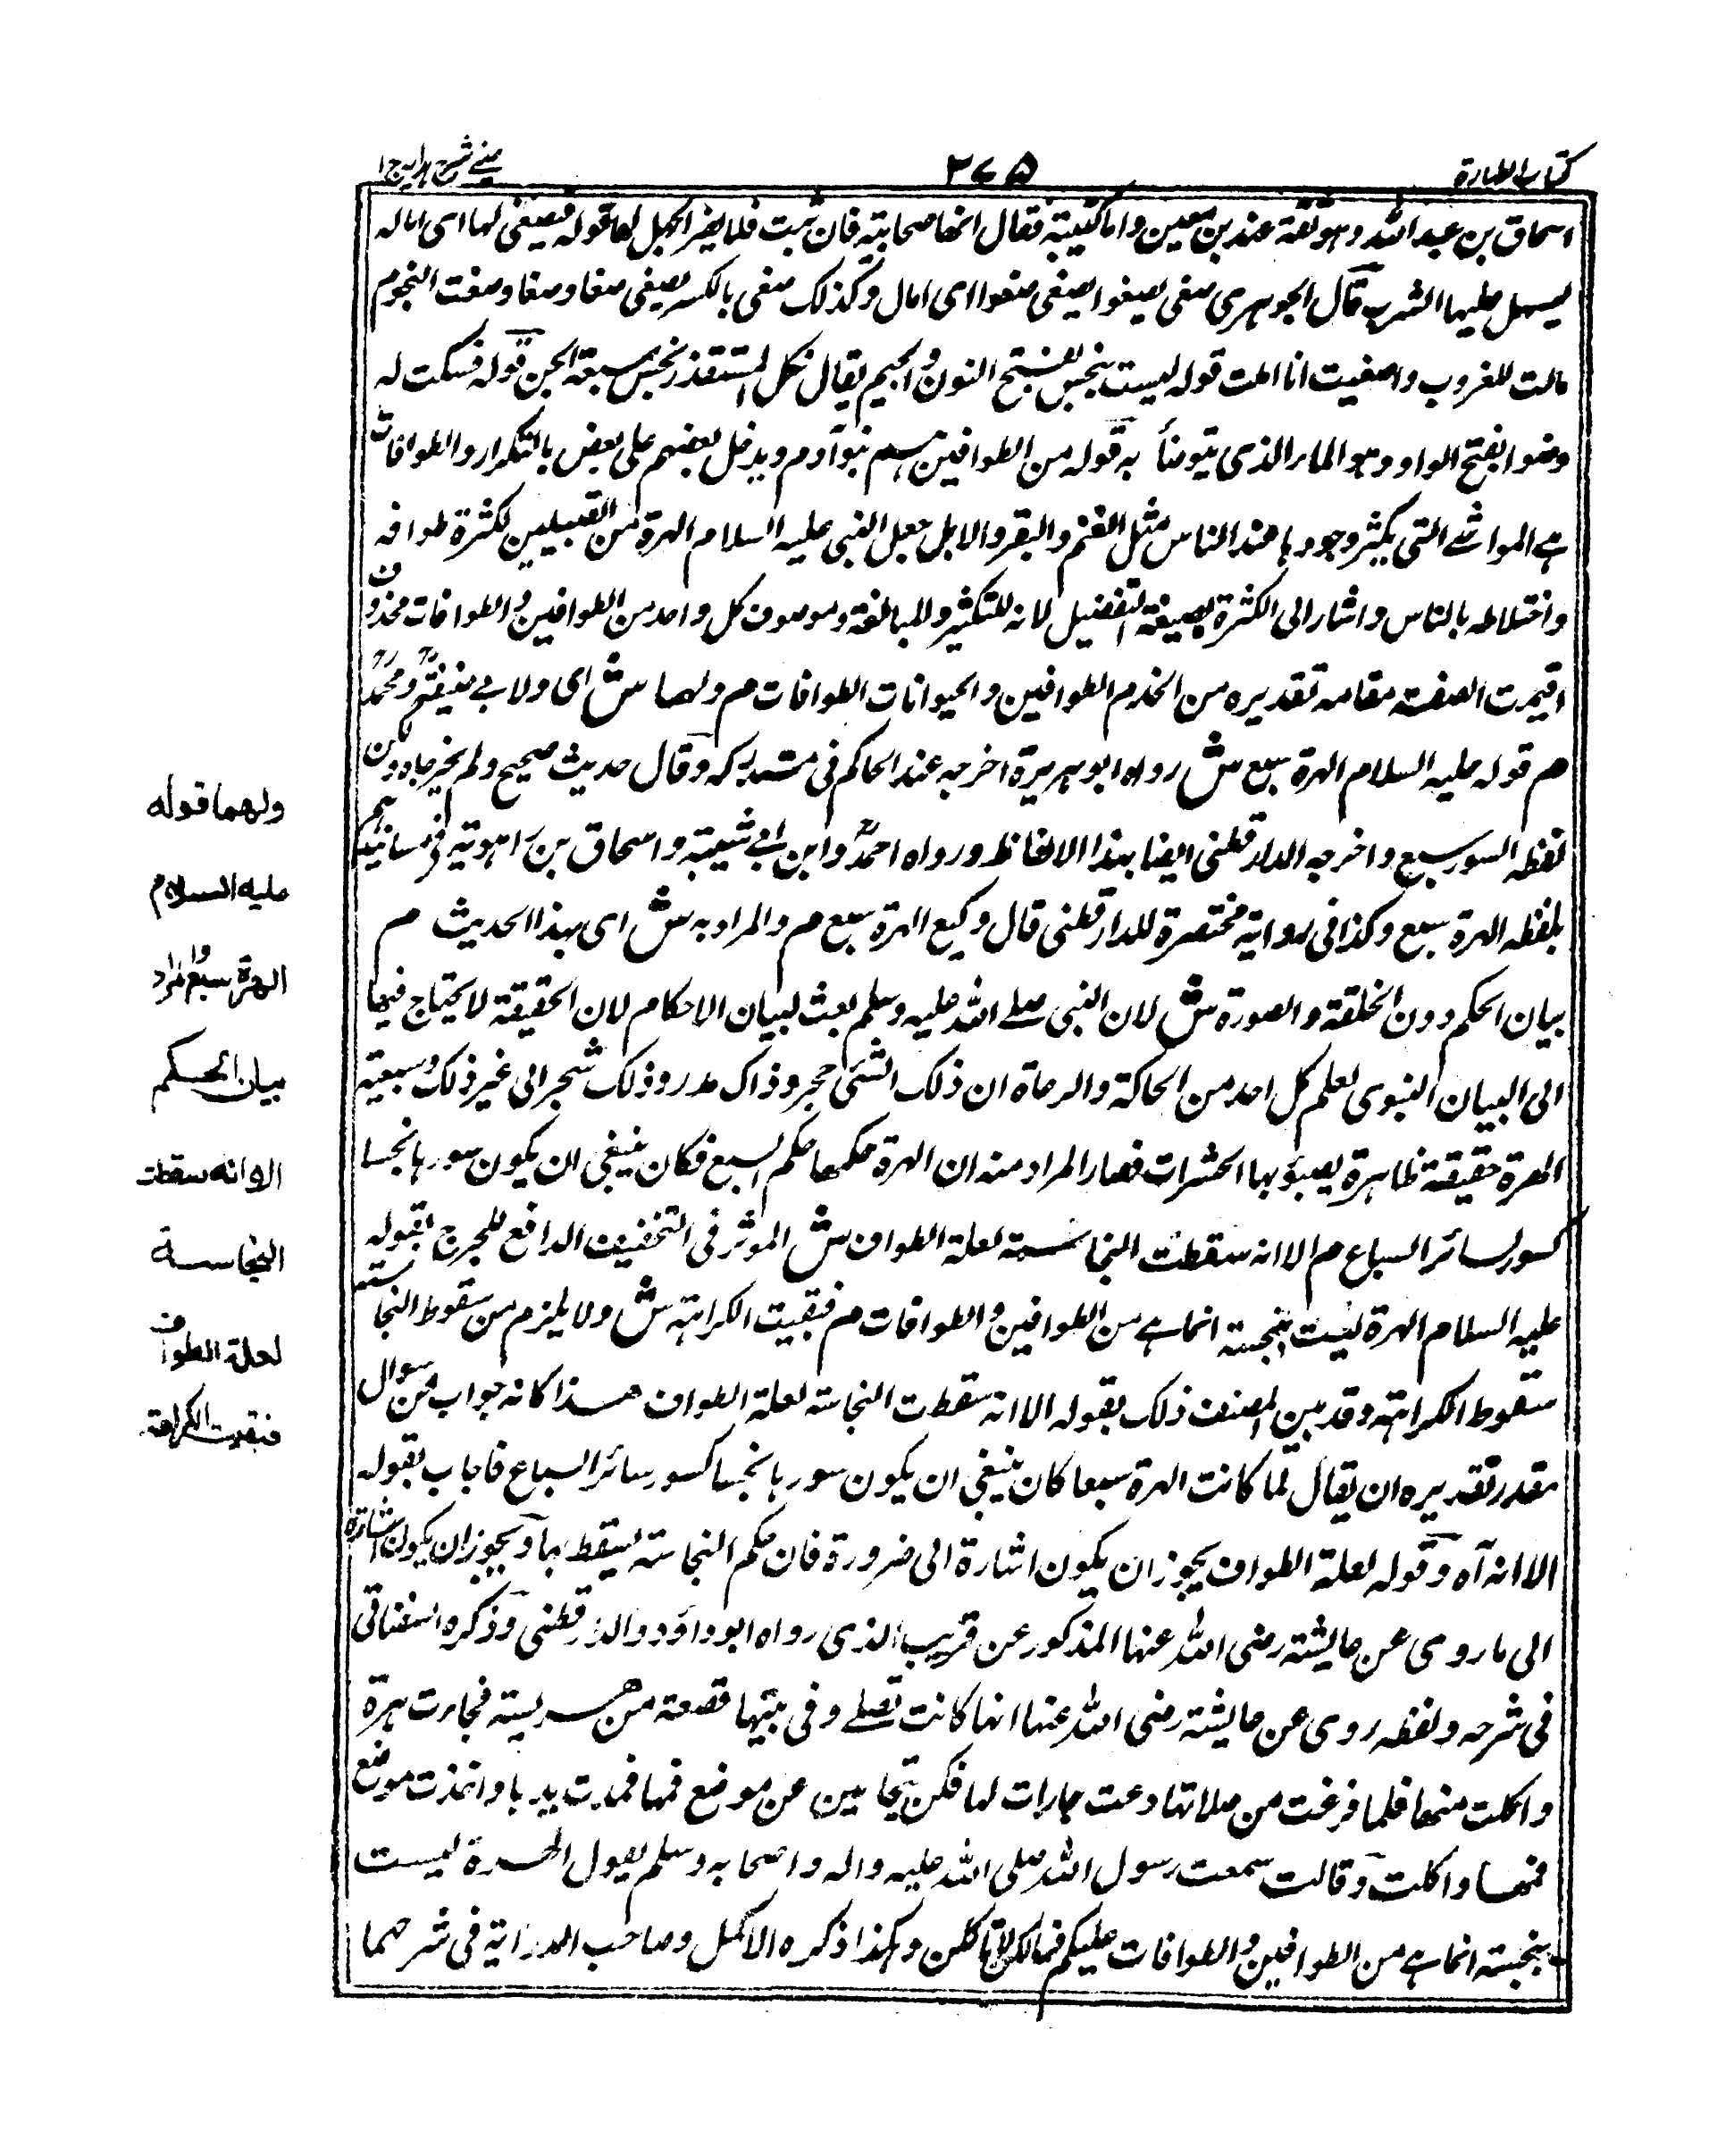 كتاب الطهارة
٢٧٥
عينى شرح هدايه ج ١
اسحاق بن عبد الله وهو ثقة عند بن معين واما كبيشة فقال انها صحابية فان ثبت فلا يضر الجهل لها قوله فيصغى لها اى اماله
ليسهل عليها الشرب قال الجوهرى صغى يصغوا يصغى صغوا اى امال وكذلك صغى بالكسر يصغى صغا وصغا وصغت النجوم
مالت للغروب واصغيت انا املت قوله ليست بنجس بفتح النون والجيم يقال لكل المستقذر نجس قوله فسكبت له
وضوا بفتح الواو وهو الماء الذى يتوضأ به قوله من الطوافين هم بنو آدم ويدخل بعضهم على بعض بالتكرار والطوافات
هے المواشے التى يكثر وجودها عند الناس مثل الغنم والبقر والابل جعل النبى عليه السلام الهرة من القبيلين لكثرة طوافه
واختلاطه بالناس واشار الى الكثرة بصيغة التفضيل لانه للتكثير والمبالغة وموصوف كل واحد من الطوافين والطوافات محذوف
اقيمت الصفة مقامه تقديره من الخدم الطوافين والحيوانات الطوافات م ولهما ش اى ولابے حنيفةؒ ومحمدؒ
م قوله عليه السلام الهرة سبع ش رواه ابو هريرة اخرجه عند الحاكم فى مستدركه وقال حديث صحيح ولم يخرجاه ولكن
لفظه السنور سبع واخرجه الدارقطنى ايضا بهذا الالفاظ ورواه احمدؒ وابن ابے شيبة واسحاق بن راهوية فى مسانيدهم
بلفظه الهرة سبع وكذا فى رواية مختصرة للدارقطنى قال وكيع الهرة سبع م والمراد به ش اى بهذا الحديث م
بيان الحكم دون الخلقة والصورة ش لان النبى صلے الله عليه وسلم بعث لبيان الاحكام لان الحقيقة لا يحتاج فيها
الى البيان النبوى لعلم كل احد من الحاكة والرعاة ان ذلك الشئ حجر وذاك مدر وذلك شجر الى غير ذلك وسبعية
الهرة حقيقة ظاهرة يصيدها الحشرات فصار المراد منه ان الهرة حكمها حكم السبع فكان ينبغى ان يكون سورها نجسا
كسور سائر السباع م الا انه سقطت النجاسة لعلة الطواف ش الموثر فى التخفيف الدافع للحرج بقوله
عليه السلام الهرة ليست بنجسة انما هے من الطوافين والطوافات م فبقيت الكراهة ش ولا يلزم من سقوط النجاسة
سقوط الكراهة وقد بين المصنف ذلك بقوله الا انه سقطت النجاسة لعلة الطواف هـذا كانه جواب عن سوال
مقدر تقديره ان يقال لما كانت الهرة سبعا كان ينبغى ان يكون سورها نجسا كسور سائر السباع فاجاب بقوله
الا انه آه وقوله لعلة الطواف يجوز ان يكون اشارة الى ضرورة فان حكم النجاسة يسقط بها ويجوز ان يكون اشارة
الى ما روى عن عايشة رضى الله عنها المذكور عن قريب الذى رواه ابو داود والدارقطنى وذكره السغناقى
فى شرحه ولفظه روى عن عايشة رضى الله عنها انها كانت تصلے وفى بيتها قصعة من هـريسة فجاءت هرة
واكلت منها فلما فرغت من صلاتها دعت جارات لها فكن يتحامين عن موضع فمها فمدت يدها واخذت موضع
فمهـا واكلت وقالت سمعت رسول الله صلى الله عليه واله واصحابه وسلم يقول الهـرة ليست
بنجسة انما هے من الطوافين والطوافات عليكم فمالكن لا تاكلن وهكذا ذكره الاكمل وصاحب الدراية فى شرحهما
ولهما قوله
عليه السلام
الهرة سبع والمراد
بيان الحكم
الا انه سقطت
النجاسة
لعلة الطواف
فبقيت الكراهة